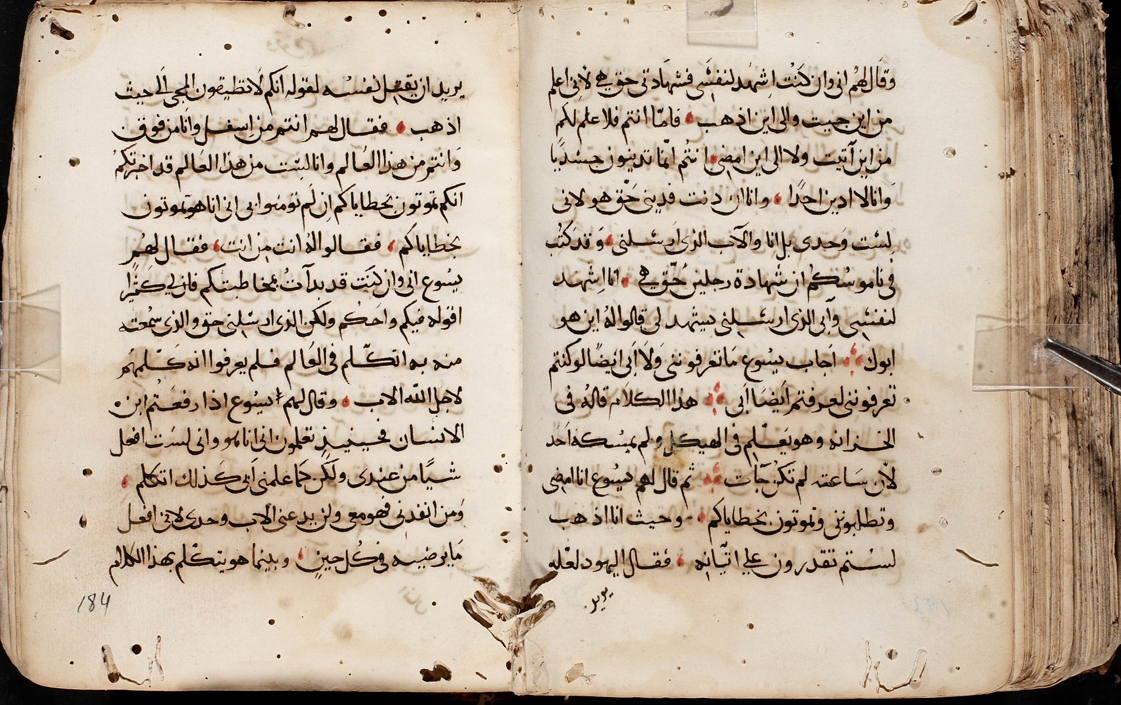 وقال لهم اني وان كنت اشهد لنفسي فشهادتي حق هي لاني اعلم
من اين جيت والى اين اذهب فامّا انتم فلا علم لكم
من اين آتيت ولا الى اين امضي انتم انما تدينون جسديا
وانا لا ادين احدًا وانا ان دنت فديني حق هو لاني
لست وحدي بل انا والآب الذي ارسلني وقد كتب
في ناموسكم ان شهادة رجلين حق هي انا اشهد
لنفسي وابي الذي ارسلني يشهد لي قالوا له اين هو
ابوك اجاب يسوع ما تعرفونني ولا ابي ايضا لو كنتم
تعرفونني لعرفتم ايضا ابي هذا الكلام قاله في
الخزانه وهو يعلم في الهيكل ولم يمسكه احد
لان ساعته لم تكن جآت ثم قال لهم يسوع انا امضى
وتطلبونني وتموتون بخطاياكم وحيث انا اذهب
لستم تقدرون على اتيانه فقال اليهود لعله
يريد
يريد ان يقتل نفسه لقوله انكم لا تطيقون المجى الى حيث
اذهب فقال لهم انتم من اسفل وانا من فوق
وانتم من هذا العالم وانا لست من هذا العالم قد اخبرتكم
انكم تموتون بخطاياكم ان لم تومنوا بي اني انا هو تموتون
بخطاياكم فقالوا له انت من انت فقال لهم
يسوع اني وان كنت قد بدات بمخاطبتكم فان لي كثيرًا
اقوله فيكم واحكم ولكن الذي ارسلني حق والذي سمعته
منه به اتكلم في العالم فلم يعرفوا انه كلمهم
لاجل الله الاب وقال لهم يسوع اذا رفعتم ابن
الانسان فحينيذ تعلمون اني انا هو واني لست افعل
شيًا من عندي ولكن كما علمني ابي كذلك اتكلم
ومن انفدني فهو معي ولن يدعني الاب وحدي لاني افعل
ما يرضيه في كل حين وبينما هو يتكلم بهذا الكلام
184